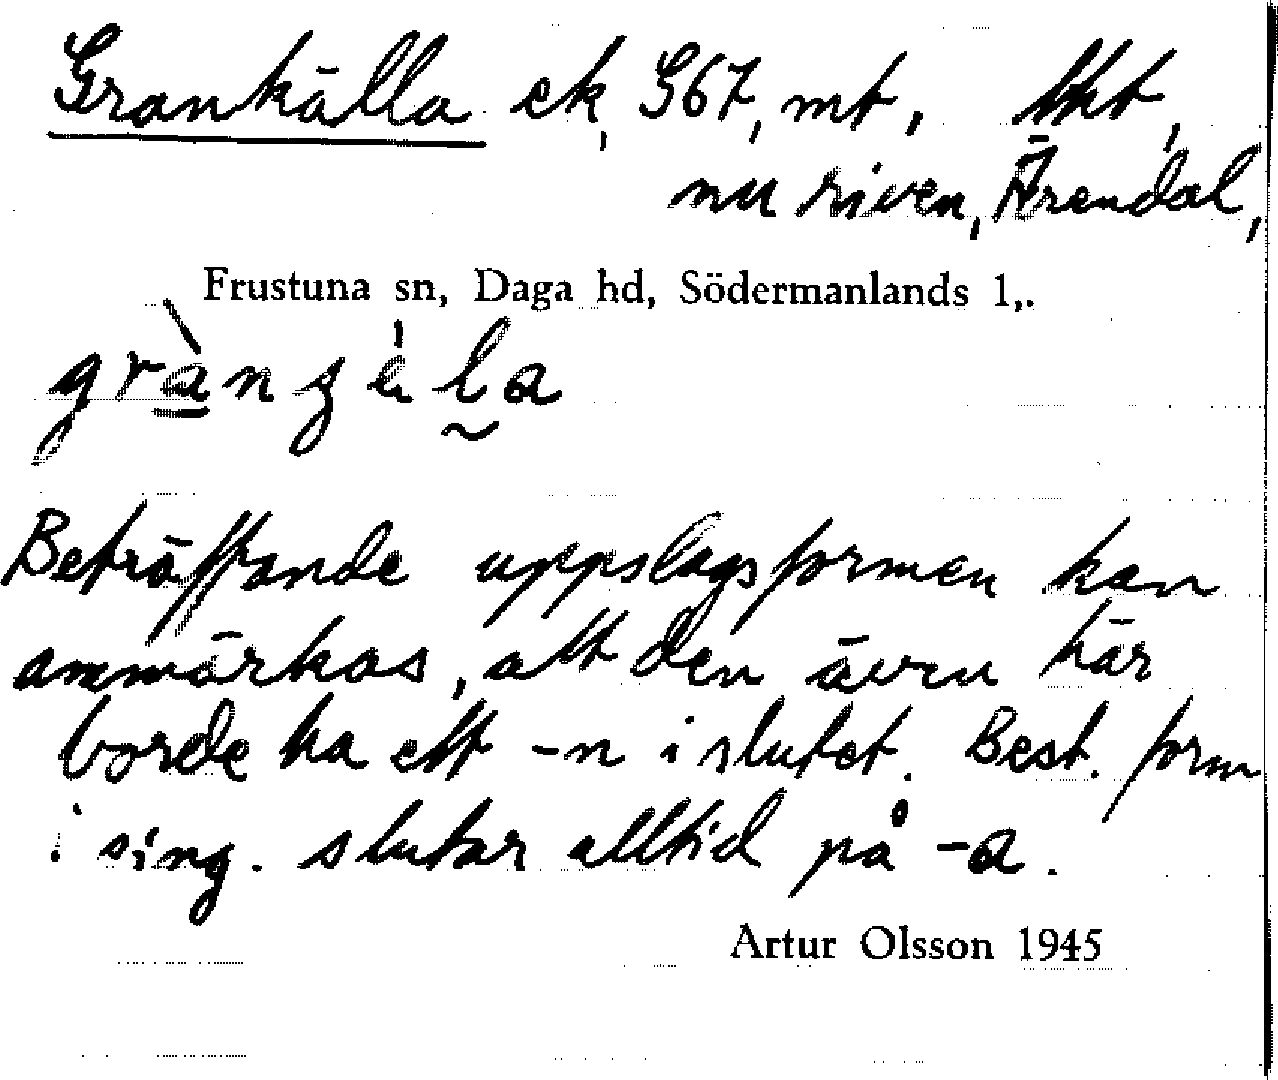 Grankälla ek, G67, mt, tkt,
nu riven, Ärendal,
Frustuna sn, Daga hd, Södermanlands l,.
Beträffande uppslagsformen kan
anmärkas, att den även här
borde ha ett -n i slutet. Best. form
i sing. slutar alltid på -a.
Artur Olsson 1945